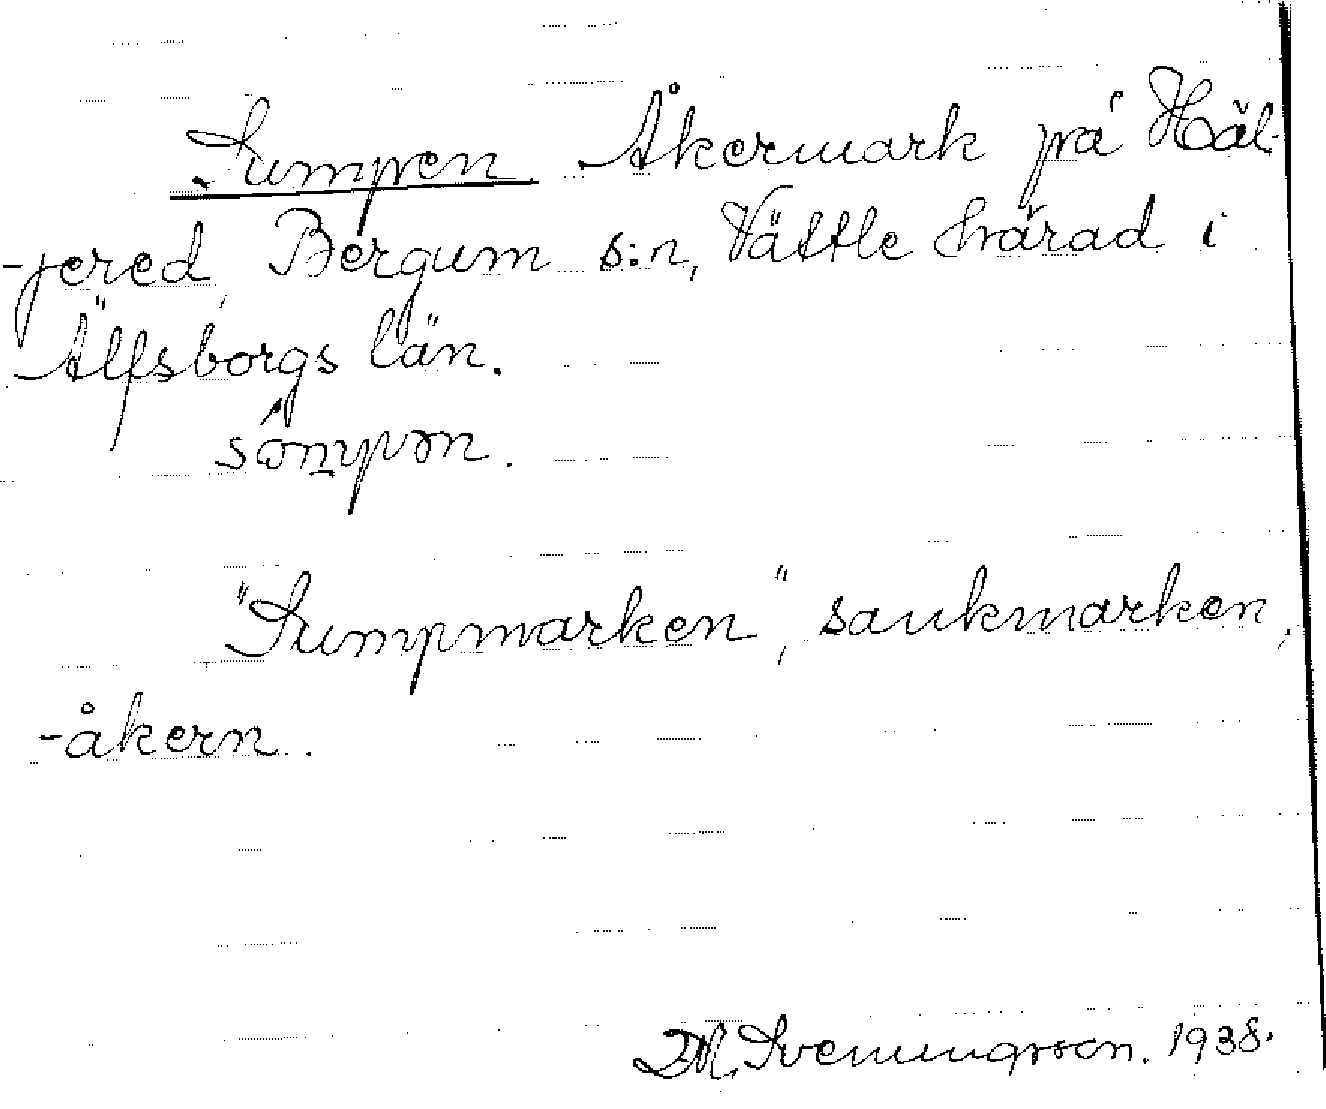 Sumpen Åkermark på Häl-
-jered, Bergum s:n, Vättle härad i
Älfsborgs län.
"Sumpmarken", sankmarken,
-åkern.
Svenningsson. 1938.